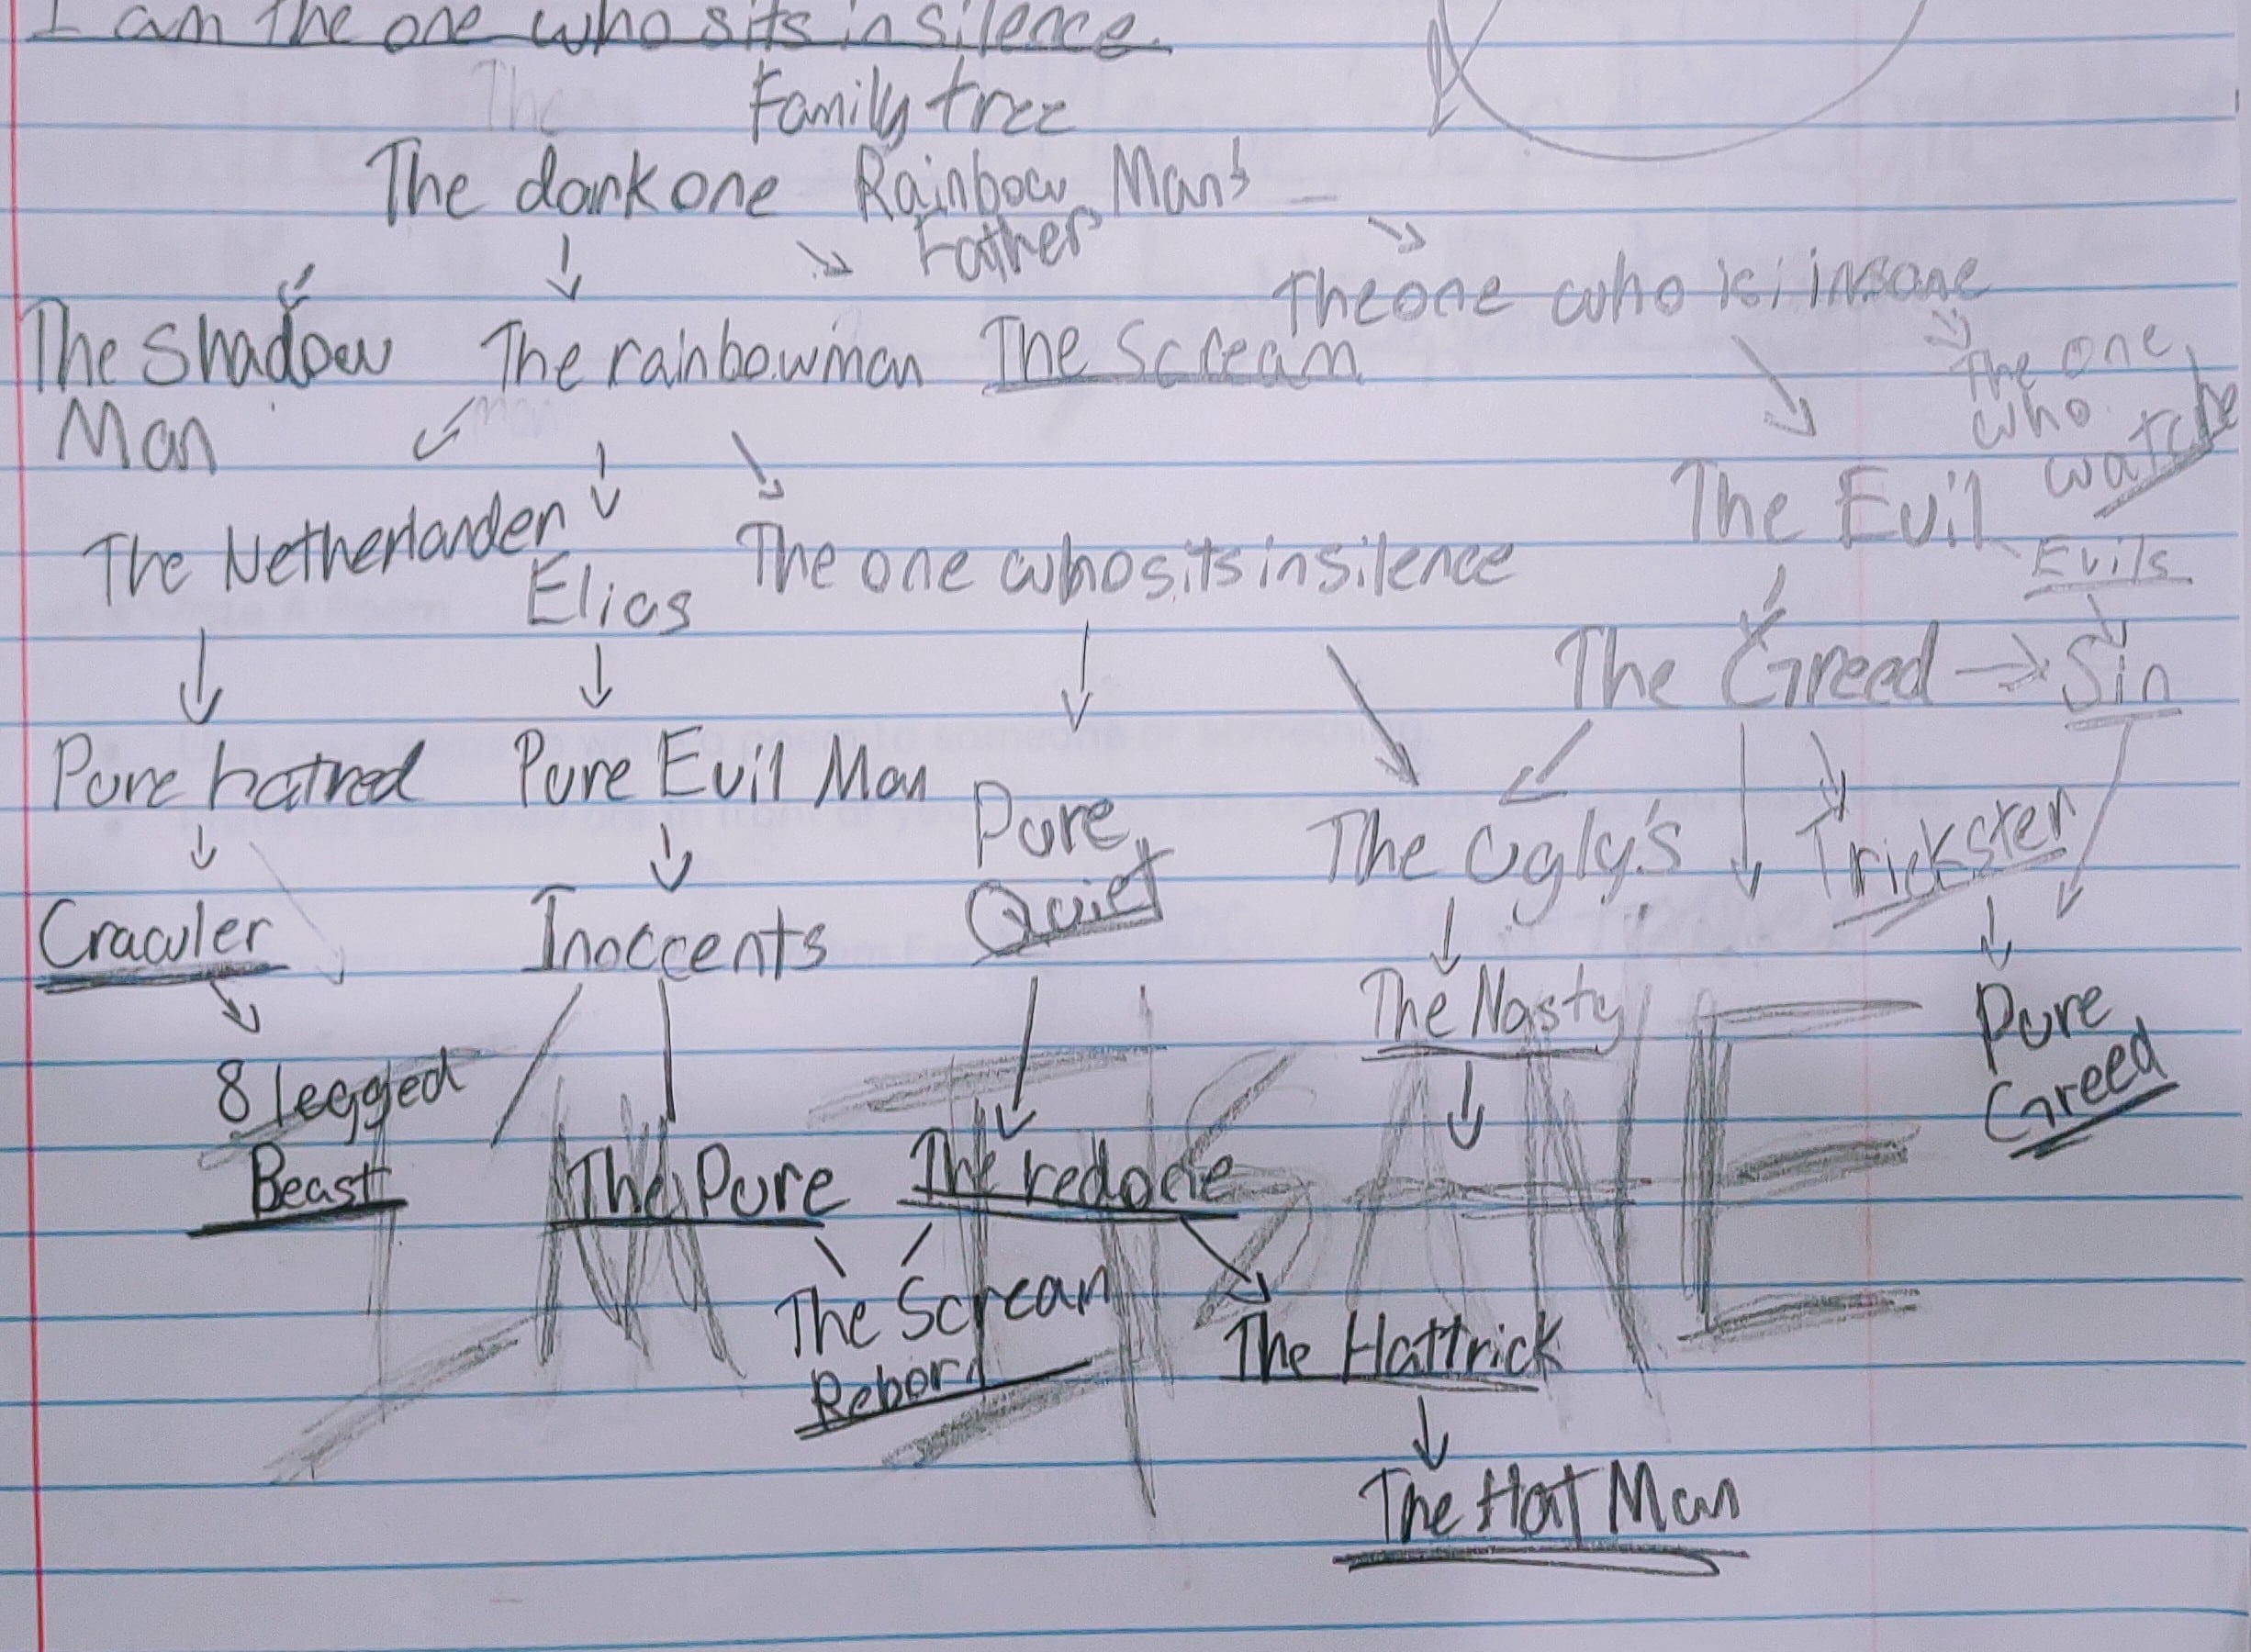 I am the one who sits in silence.
The
Family tree
The dark one Rainbow Man's
Father
The one who is insane
The Shadow
Man
The rainbowman The Scream
The one
who
watche
The Evil
The Netherlander
Elias
The one who sits in silence
Evils
The Greed → Sin
Pure hatred Pure Evil Man
Pure
Quiet
The Ugly's
Trickster
Crawler
Inoccents
The Nasty
Pure
Greed
8 legged
Beast
The Pure The red one
I'M INSANE
The Scream
Reborn
The Hattrick
The Hat Man